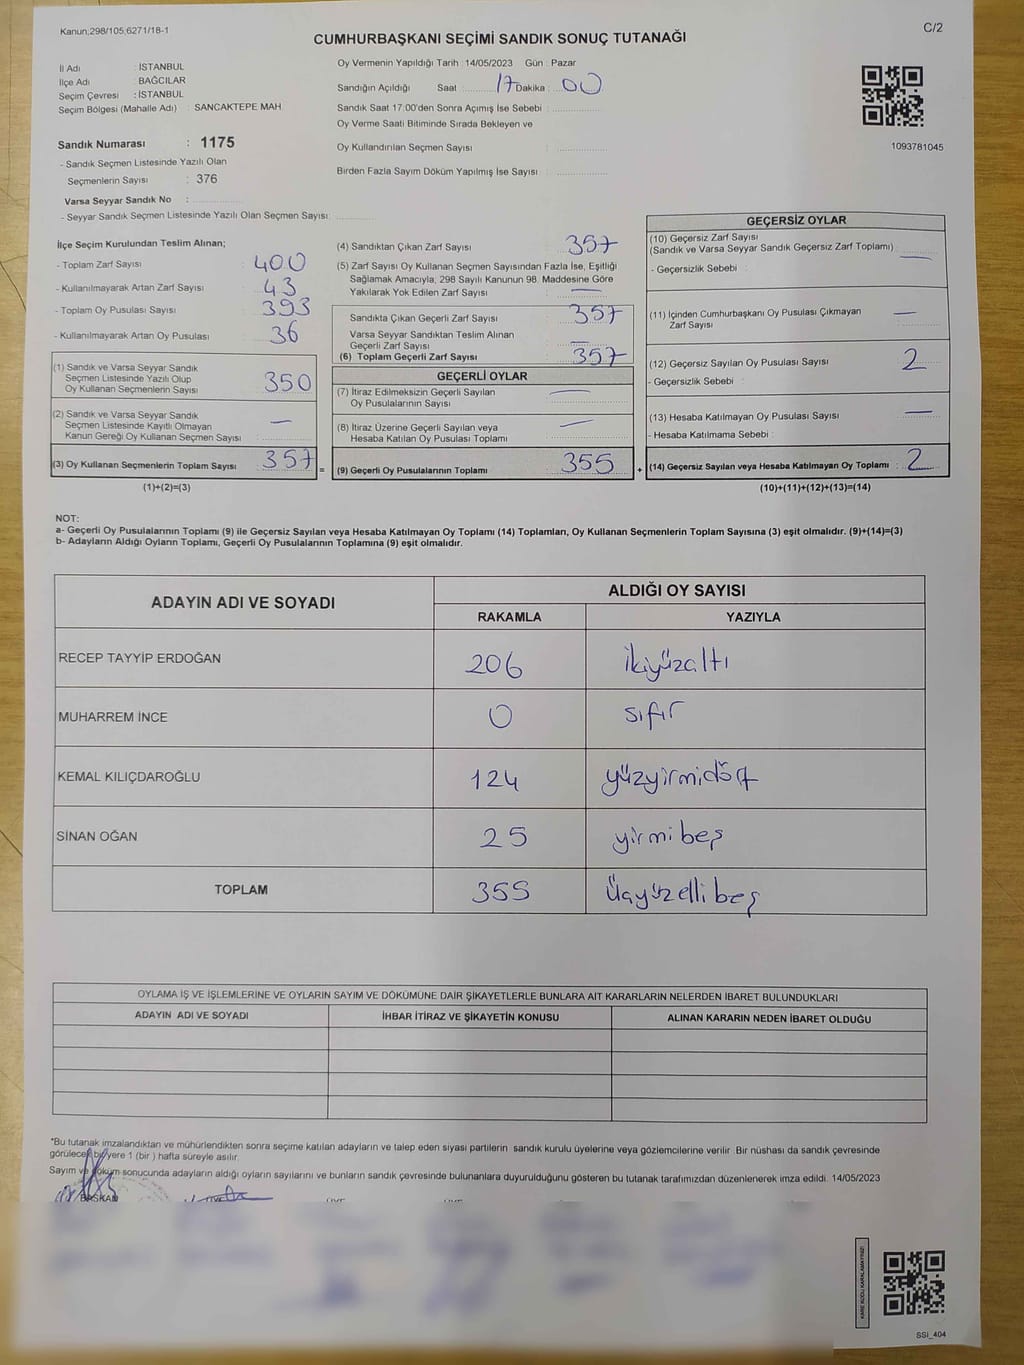 Kanun;298/105,6271/18-1
C/2
CUMHURBAŞKANI SEÇİMİ SANDIK SONUÇ TUTANAĞI
İl Adı : İSTANBUL
İlçe Adı : BAĞCILAR
Seçim Çevresi : İSTANBUL
Seçim Bölgesi (Mahalle Adı) : SANCAKTEPE MAH.
Oy Vermenin Yapıldığı Tarih : 14/05/2023 Gün : Pazar
Sandığın Açıldığı Saat 17 Dakika : 00
Sandık Saat 17:00'den Sonra Açımış İse Sebebi :
Oy Verme Saati Bitiminde Sırada Bekleyen ve
Oy Kullandırılan Seçmen Sayısı :
Birden Fazla Sayım Döküm Yapılmış İse Sayısı :
1093781045
Sandık Numarası : 1175
- Sandık Seçmen Listesinde Yazılı Olan
Seçmenlerin Sayısı : 376
Varsa Seyyar Sandık No :
- Seyyar Sandık Seçmen Listesinde Yazılı Olan Seçmen Sayısı:
İlçe Seçim Kurulundan Teslim Alınan;
- Toplam Zarf Sayısı : 400
- Kullanılmayarak Artan Zarf Sayısı : 43
- Toplam Oy Pusulası Sayısı : 393
- Kullanılmayarak Artan Oy Pusulası : 36
(1) Sandık ve Varsa Seyyar Sandık
Seçmen Listesinde Yazılı Olup
Oy Kullanan Seçmenlerin Sayısı : 350
(2) Sandık ve Varsa Seyyar Sandık
Seçmen Listesinde Kayıtlı Olmayan
Kanun Gereği Oy Kullanan Seçmen Sayısı : —
(3) Oy Kullanan Seçmenlerin Toplam Sayısı : 357 =
(1)+(2)=(3)
(4) Sandıktan Çıkan Zarf Sayısı : 357
(5) Zarf Sayısı Oy Kullanan Seçmen Sayısından Fazla İse, Eşitliği
Sağlamak Amacıyla, 298 Sayılı Kanunun 98. Maddesine Göre
Yakılarak Yok Edilen Zarf Sayısı : —
Sandıkta Çıkan Geçerli Zarf Sayısı : 357
Varsa Seyyar Sandıktan Teslim Alınan
Geçerli Zarf Sayısı : —
(6) Toplam Geçerli Zarf Sayısı : 357
GEÇERLİ OYLAR
(7) İtiraz Edilmeksizin Geçerli Sayılan
Oy Pusulalarının Sayısı : —
(8) İtiraz Üzerine Geçerli Sayılan veya
Hesaba Katılan Oy Pusulası Toplamı : —
(9) Geçerli Oy Pusulalarının Toplamı : 355 +
GEÇERSİZ OYLAR
(10) Geçersiz Zarf Sayısı
(Sandık ve Varsa Seyyar Sandık Geçersiz Zarf Toplamı) : —
- Geçersizlik Sebebi :
(11) İçinden Cumhurbaşkanı Oy Pusulası Çıkmayan
Zarf Sayısı : —
(12) Geçersiz Sayılan Oy Pusulası Sayısı : 2
- Geçersizlik Sebebi :
(13) Hesaba Katılmayan Oy Pusulası Sayısı : —
- Hesaba Katılmama Sebebi :
(14) Geçersiz Sayılan veya Hesaba Katılmayan Oy Toplamı : 2
(10)+(11)+(12)+(13)=(14)
NOT:
a- Geçerli Oy Pusulalarının Toplamı (9) ile Geçersiz Sayılan veya Hesaba Katılmayan Oy Toplamı (14) Toplamları, Oy Kullanan Seçmenlerin Toplam Sayısına (3) eşit olmalıdır. (9)+(14)=(3)
b- Adayların Aldığı Oyların Toplamı, Geçerli Oy Pusulalarının Toplamına (9) eşit olmalıdır.
ADAYIN ADI VE SOYADI
ALDIĞI OY SAYISI
RAKAMLA YAZIYLA
RECEP TAYYİP ERDOĞAN 206 ikiyüzaltı
MUHARREM İNCE 0 sıfır
KEMAL KILIÇDAROĞLU 124 yüzyirmidört
SİNAN OĞAN 25 yirmibeş
TOPLAM 355 Üçyüzellibeş
OYLAMA İŞ VE İŞLEMLERİNE VE OYLARIN SAYIM VE DÖKÜMÜNE DAİR ŞİKAYETLERLE BUNLARA AİT KARARLARIN NELERDEN İBARET BULUNDUKLARI
ADAYIN ADI VE SOYADI İHBAR İTİRAZ VE ŞİKAYETİN KONUSU ALINAN KARARIN NEDEN İBARET OLDUĞU
*Bu tutanak imzalandıktan ve mühürlendikten sonra seçime katılan adayların ve talep eden siyasi partilerin sandık kurulu üyelerine veya gözlemcilerine verilir. Bir nüshası da sandık çevresinde
görülecek bir yere 1 (bir ) hafta süreyle asılır.
Sayım ve döküm sonucunda adayların aldığı oyların sayılarını ve bunların sandık çevresinde bulunanlara duyurulduğunu gösteren bu tutanak tarafımızdan düzenlenerek imza edildi. 14/05/2023
BAŞKAN
KARE KODU KARALAMAYINIZ!
SSİ_404